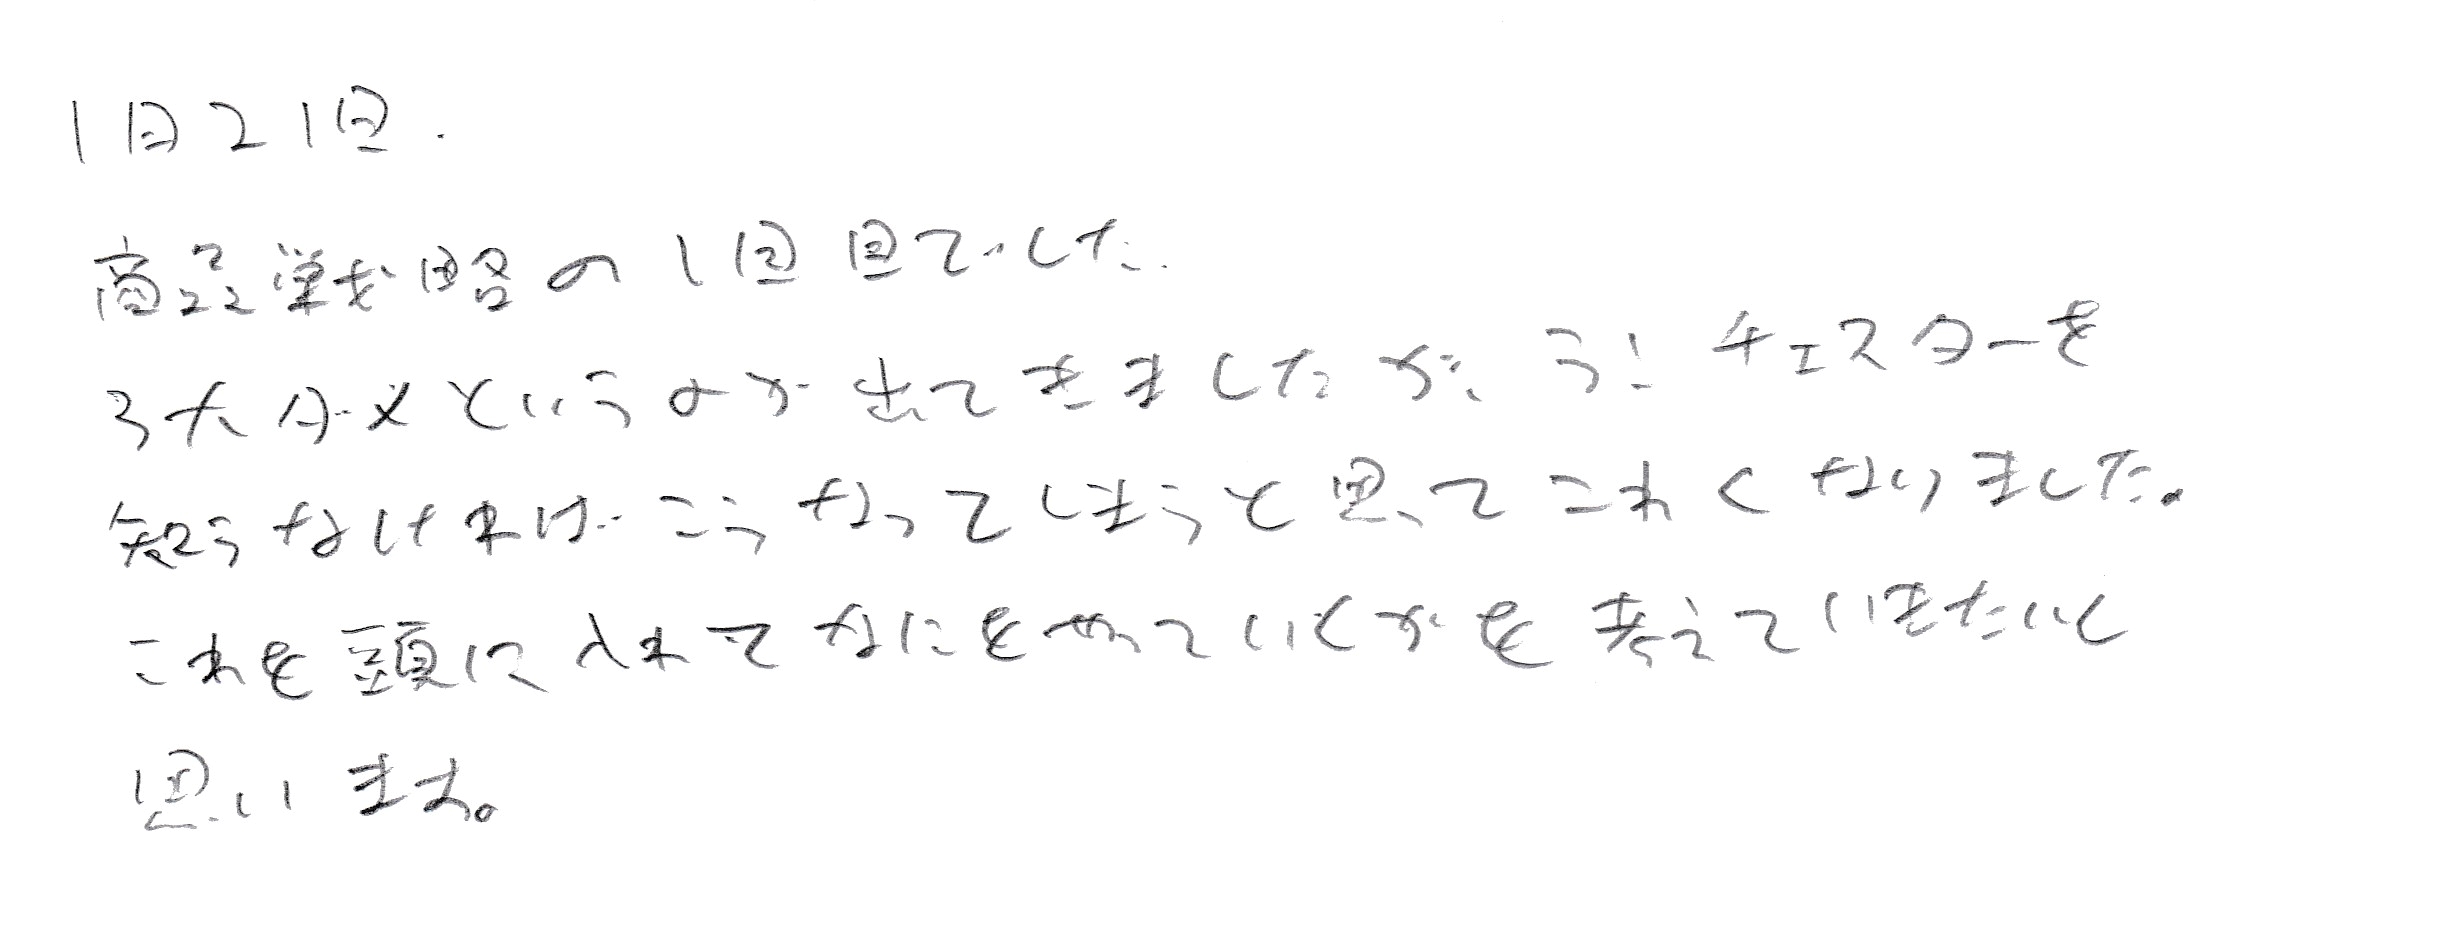 1月21日.
商品戦略の1回目でした.
3大分〆というのが出てきましたが、ランチェスターを
知らなければこうなってしまうと思ってこわくなりました。
これを頭に入れてなにをやっていくかを考えていきたいと
思います。